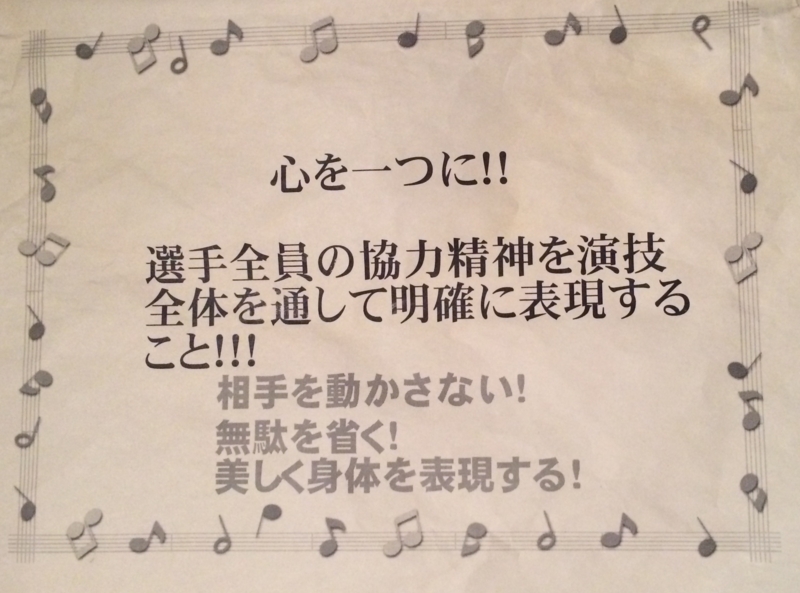 心を一つに!!
選手全員の協力精神を演技
全体を通して明確に表現する
こと!!!
相手を動かさない!
無駄を省く!
美しく身体を表現する!